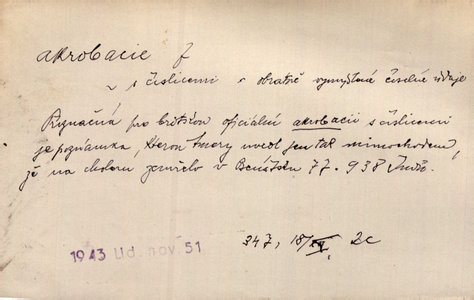 akrobacie f
~ s číslicemi = obratně vymyšlené číselné údaje
Význačná pro britskou oficiální akrobacii s číslicemi
je poznámka, kterou Amery uvedl jen tak mimochodem,
že na choleru zemřelo v Bengálsku 77.938 Indů.
1943 Lid. nov. 51
347, 18/XII, 2c